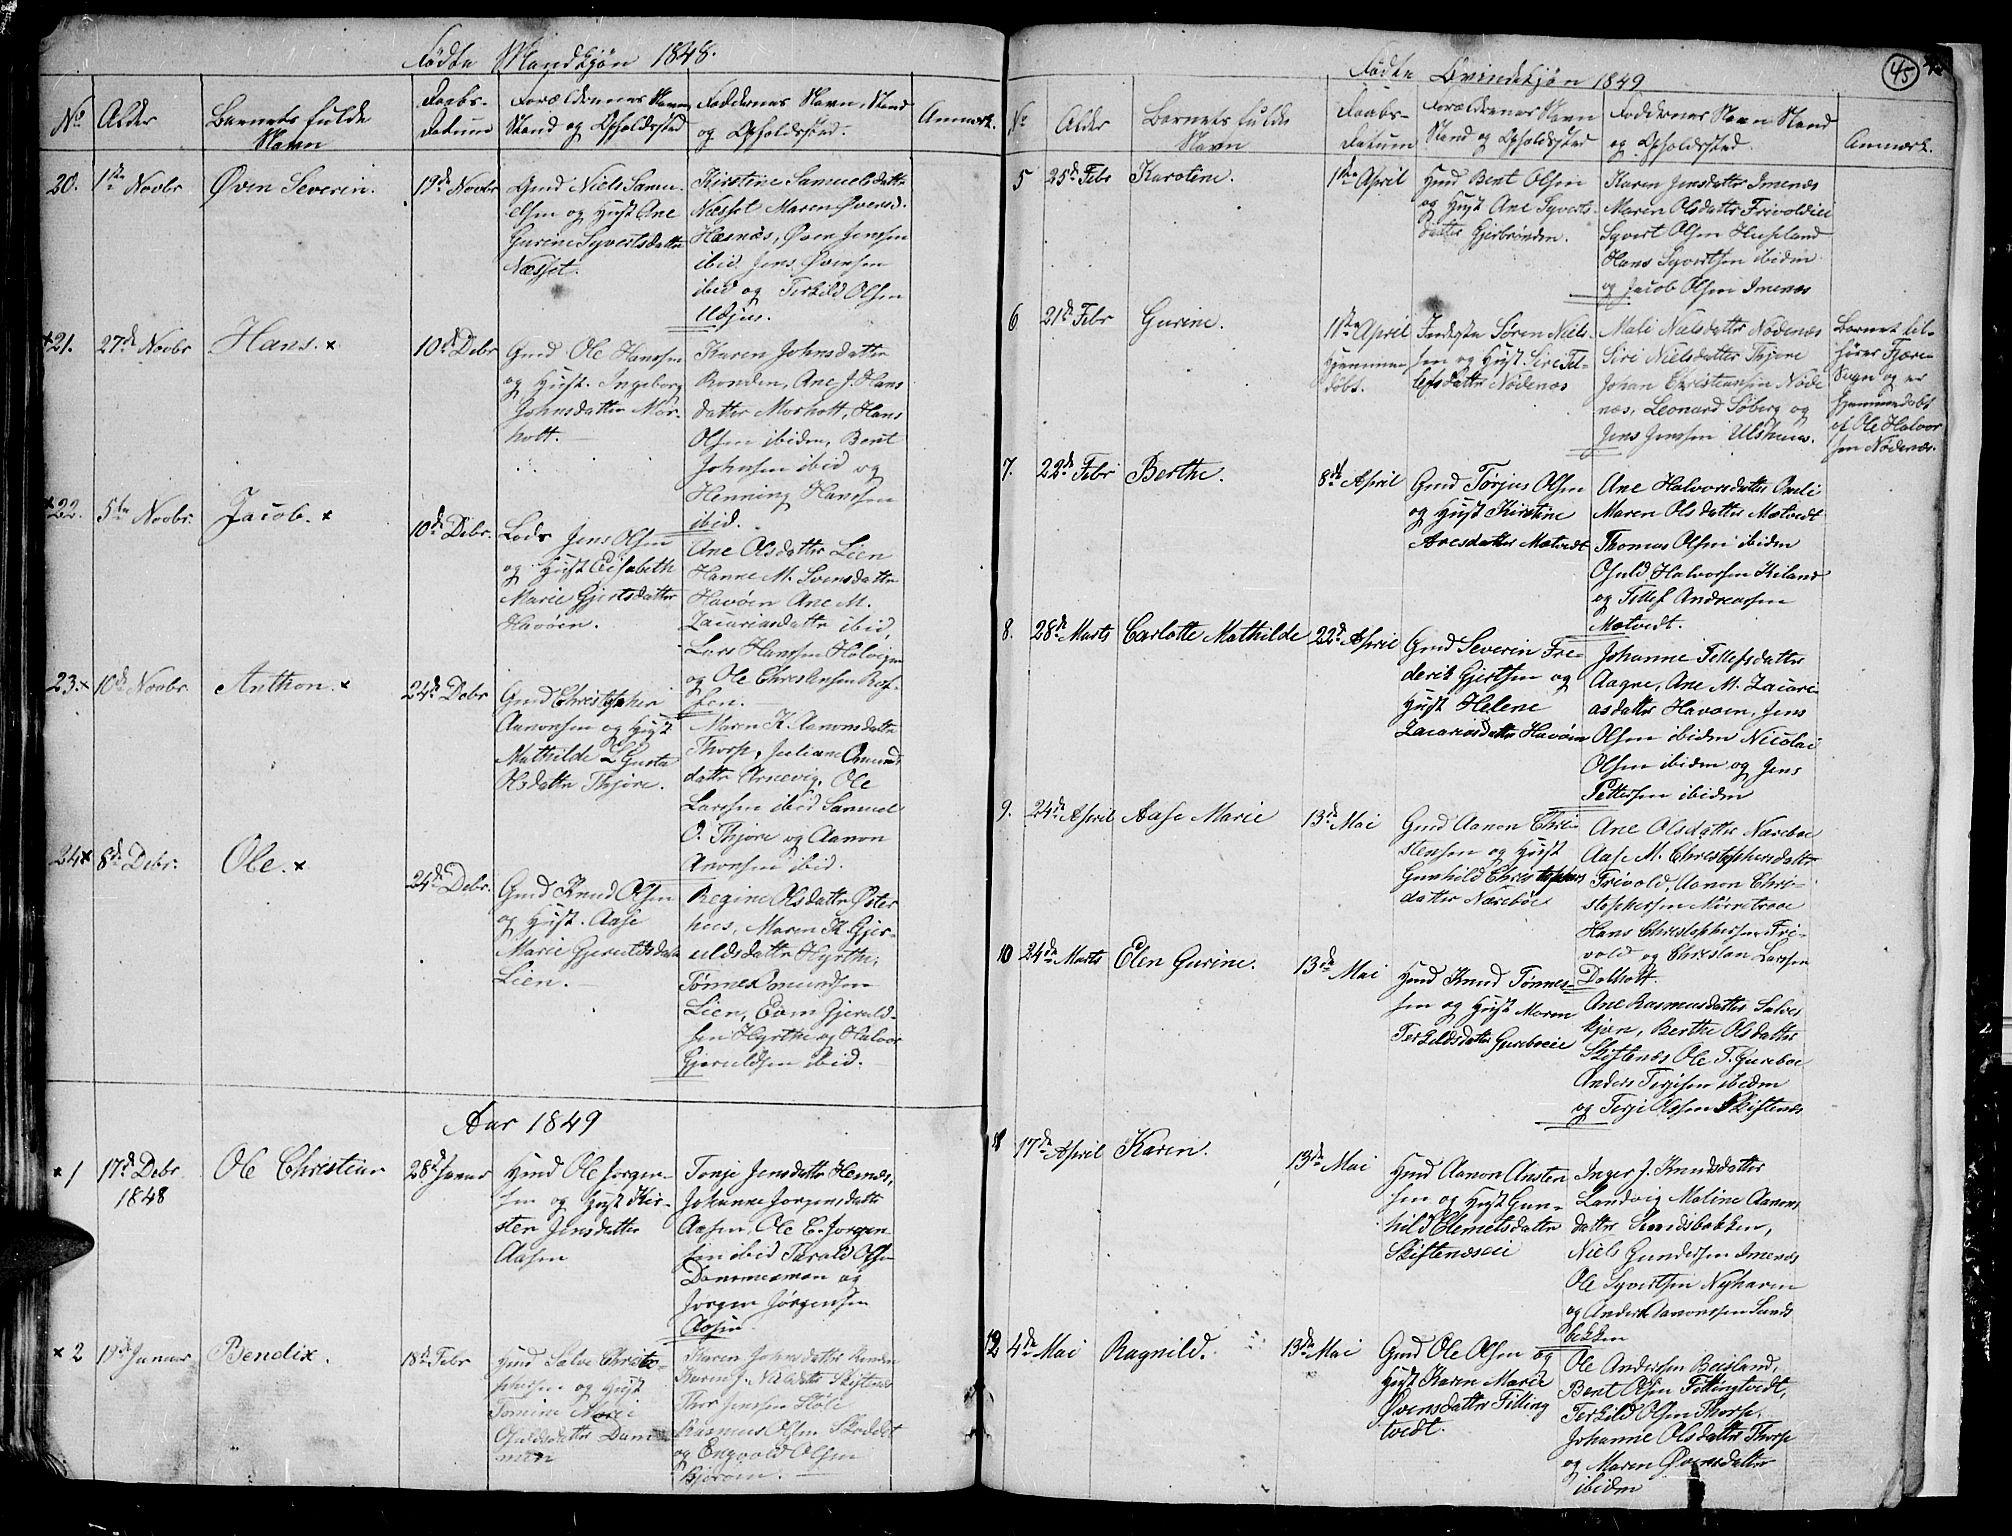 Fødte Mandkjøn 1848.
No
Alder
Barnets fulde
Navn
Daabs-
Datum
Forældrenes Navn
Stand og Opholdssted
Faddernes Navn, Stand
og Opholdssted.
Anmærk.
20.
1ste Novbr
Øven Severin.
19de Novbr
Gmd Niels Samu-
elsen og Hust Ane
Gurine Syvertsdatter
Næsset.
Kirstine Samuelsdatter
Næsset Maren Øvensd.
Hæsnæs, Øven Jensen
ibid Jens Øvensen
ibid og Terkild Olsen
21.
27de Novbr
Hans. x
10de Debr
Gmd Ole Hansen
og Hust. Ingeborg
Johnsdatter Mor-
holt.
Karen Johnsdatter
Ronden, Ane J. Hans
datter Morholt, Hans
Olsen ibiden, Bent
Johnsen ibid og
Henning Hansen
ibid.
x22.
5te Novbr.
Jacob. x
10de Debr.
Lods Jens Olsen
og Hust Elisabeth
Marie Gjertsdatter
Havøen.
Ane Olsdatter Lien
Hanne M. Svensdatter
Havøen Ane M.
Zacariasdattr ibid,
Lars Hansen Holvigen
og Ole Christensen
23. x
10de Novbr.
Anthon. x
24de Debr
Gmd Christopher
Aanonsen og Hust
Mathilde
Olsdatter Thjøre.
Maren K. Aanonsdatter
Thorp, Juliane Omund
datter Arnevig, Ole
Larsen ibid Samuel
O. Thjøre og Aanon
Anonsen ibid.
24 x
8de Debr.
Ole. x
24de Debr.
Gmd Knud Olsen
og Hust. Aase
Marie Gjeruldsdatter
Lien.
Regine Olsdatter Øster
huus, Maren K. Gjer-
uldsdatter Hyrthe,
Tønnes Omundsen
Lien, Gjeruld-
sen Hyrthe og Halvor
Gjeruldsen ibid.
Aar 1849
x 1
17de Debr.
1848
Ole Christian
28de Januar
Hmd Ole Jorgen-
sen og Hust Kir-
sten Jensdatter
Aasen
Tonje Jensdatter Hesnæs,
Johanne Jorgensdatter
Aasen, Ole E. Jorgen-
sen ibid Tarald Olsen
Dommesmoen og
Jørgen Jørgensen
Aasen
x 2
19de Januar
Bendix.
18de Febr
Hmd Salve Christo-
phersen og Hust
Tomine Marie
Johnsdatter
Karen J. Nielsdatter Skiftenæs
Thor Jensen
Rasmus Olsen
og Engvold Olsen
Bjoroen.
Fødte Qvindekjøn 1849
45
No
Alder
Barnets fulde
Navn
Daabs-
Datum
Forældrenes Navn
Stand og Opholdssted
Faddernes Navn Stand
og Opholdssted.
Anmærk.
5
25de Febr
Karoline.
1ste April
Hmd Bent Olsen
og Hust Ane Syverts-
datter Gjerbrønden.
Karen Jensdatter Imenæs
Maren Olsdatter Frivoldeie
Syvert Olsen Huseland
Hans Syvertsen ibiden
og Jacob Olsen Imenæs
6
21de Febr
Gurine.
1ste April
Hjemme-
døbt.
Inderste Søren Niel-
sen og Hust. Siri Tel-
lefsdatter Nødenæs
Mali Nielsdatter Nødenæs
Siri Nielsdatter Thjore
Johan Christiansen Nøde
næs, Leonard Søberg og
Jens Jensen
Barnet til-
hører Fjære
Sogn og er
hjemmedøbt
af Ole Halvor
sen Nødenæs.
7.
22de Febr
Berthe.
8de April
Gmd Torjus Olsen
og Hust Kirstine
Aresdatter Molvedt
Ane Halvorsdatter Omli
Maren Olsdatter Molvedt
Thomas Olsen ibiden
Osuld Halvorsen Kiland
og Tellef Andreassen
Molvedt.
8.
28de Marts
Carlotte Mathilde
22de April
Gmd Severin Fre-
derik Gjertsen og
Hust Helene
Zacariasdatter Havøen
Johanne Tellefsdatter
Aagre, Ane M. Zacari-
asdatter Havøen, Jens
Olsen ibiden Nicolai
Olsen ibiden og Jens
Pettersen ibiden
9.
24de April
Aase Marie
13de Mai
Gmd Aanon Chri-
stensen og Hust
Gunhild Christophers
datter Nærebøe
Ane Olsdatter Nærebøe
Aase M. Christophersdatter
Frivold, Aanon Chri-
stophersen Mørretraae
Hans Christophersen Fri-
vold og Christian Larsen
Dalholt.
10
24de Marts
Elen Gurine.
13de Mai
Hmd Knud Tønnes-
sen og Hust Maren
Terkildsdatter Gurebøeie
Ane Rasmusdatter Salves
kjær, Berthe Olsdatter
Skiftenæs Ole T. Gurebøe
Anders Terjesen ibiden
og Terje Olsen Skiftenæs
11
17de April
Karen.
13de Mai
Hmd Aanon Ansten
sen og Hust Gun-
hild Clemetsdatter
Skiftenæseie
Inger J. Knudsdatter
Landvig Maline Aanons
datter Sundsbakken,
Niels Gundersen Imenæs
Ole Syvertsen Nyhaven
og Anders Aanonsen Sunds
bakken
12
4de Mai
Ragnild.
13de Mai
Gmd Ole Olsen og
Hust Karen Marie
Øvensdatter Tilling
tvedt.
Ole Andersen Beisland,
Bent Olsen Tellingtvedt,
Terkild Olsen Thorp,
Johanne Olsdatter Thorp
og Maren Øvensdatter
ibiden